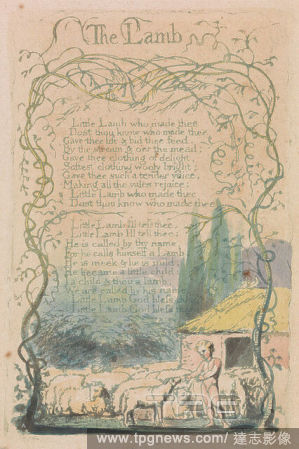 The Lamb
Little Lamb who made thee
Dost thou know who made thee
Gave thee life & bid thee feed.
By the stream & o'er the mead;
Gave thee clothing of delight,
Softest clothing wooly bright;
Gave thee such a tender voice,
Making all the vales rejoice:
Little Lamb who made thee
Dost thou know who made thee
Little Lamb I'll tell thee,
Little Lamb I'll tell thee;
He is called by thy name,
For he calls himself a Lamb:
He is meek & he is mild,
He became a little child:
I a child & thou a lamb,
We are called by his name.
Little Lamb God bless thee.
Little Lamb God bless thee.
www.tpgnews.com/ 達志影像